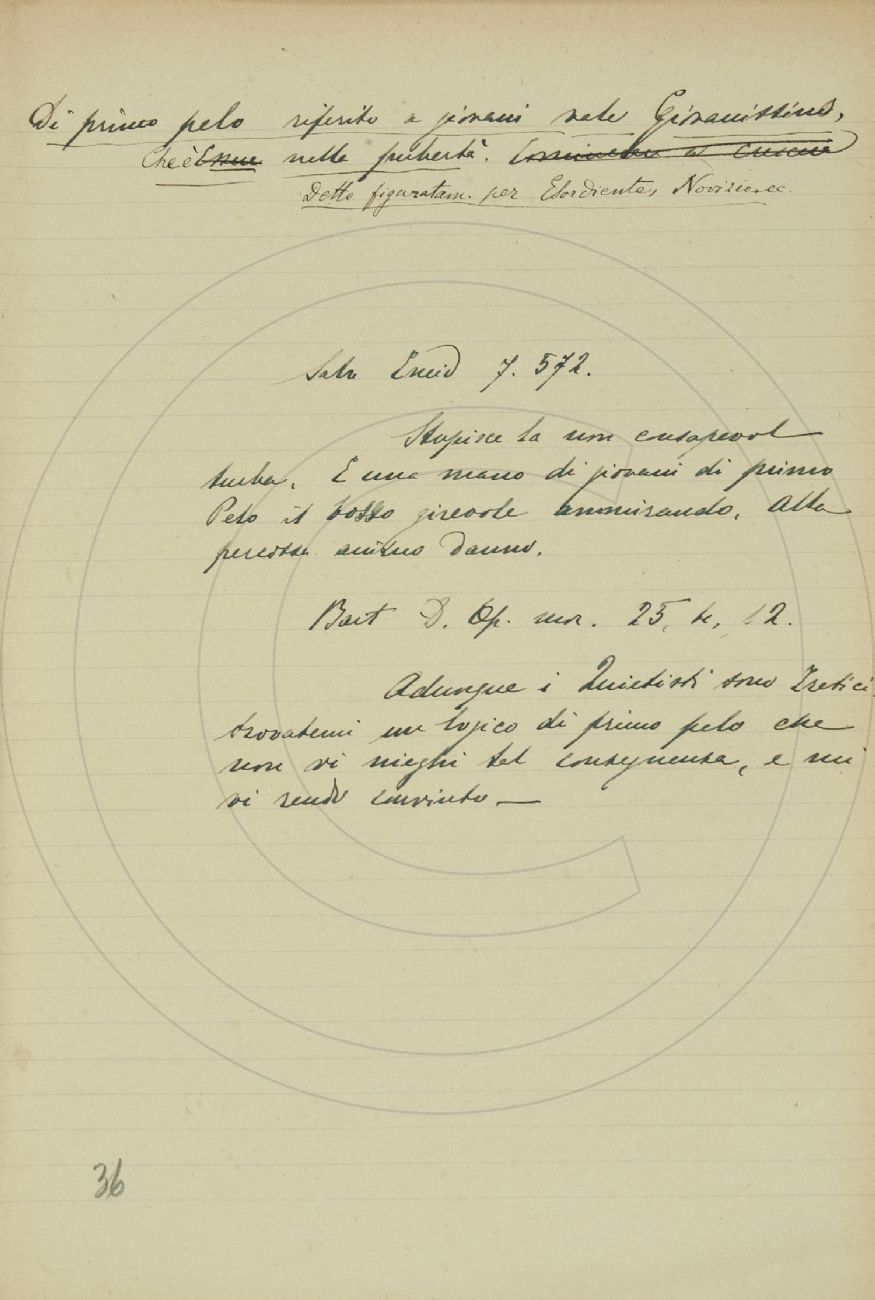 Di primo pelo riferito a giovani vale Giovanissimo,
che è nella pubertà.
Detto figuratam. per Esordiente, Novizio, ec.
Salv. Eneid 7. 572.
Stupisce la non consapevol
turba, E una mano di giovani di primo
Pelo il bosso girevole ammirando. Alla
percossa animo danno.
Bart D. Op. mor. 25, 12.
Adunque i Quietisti sono Eretici,
trovatemi un logico di primo pelo che
non vi nieghi tal conseguenza, e mi
vi rendo convinto —
36